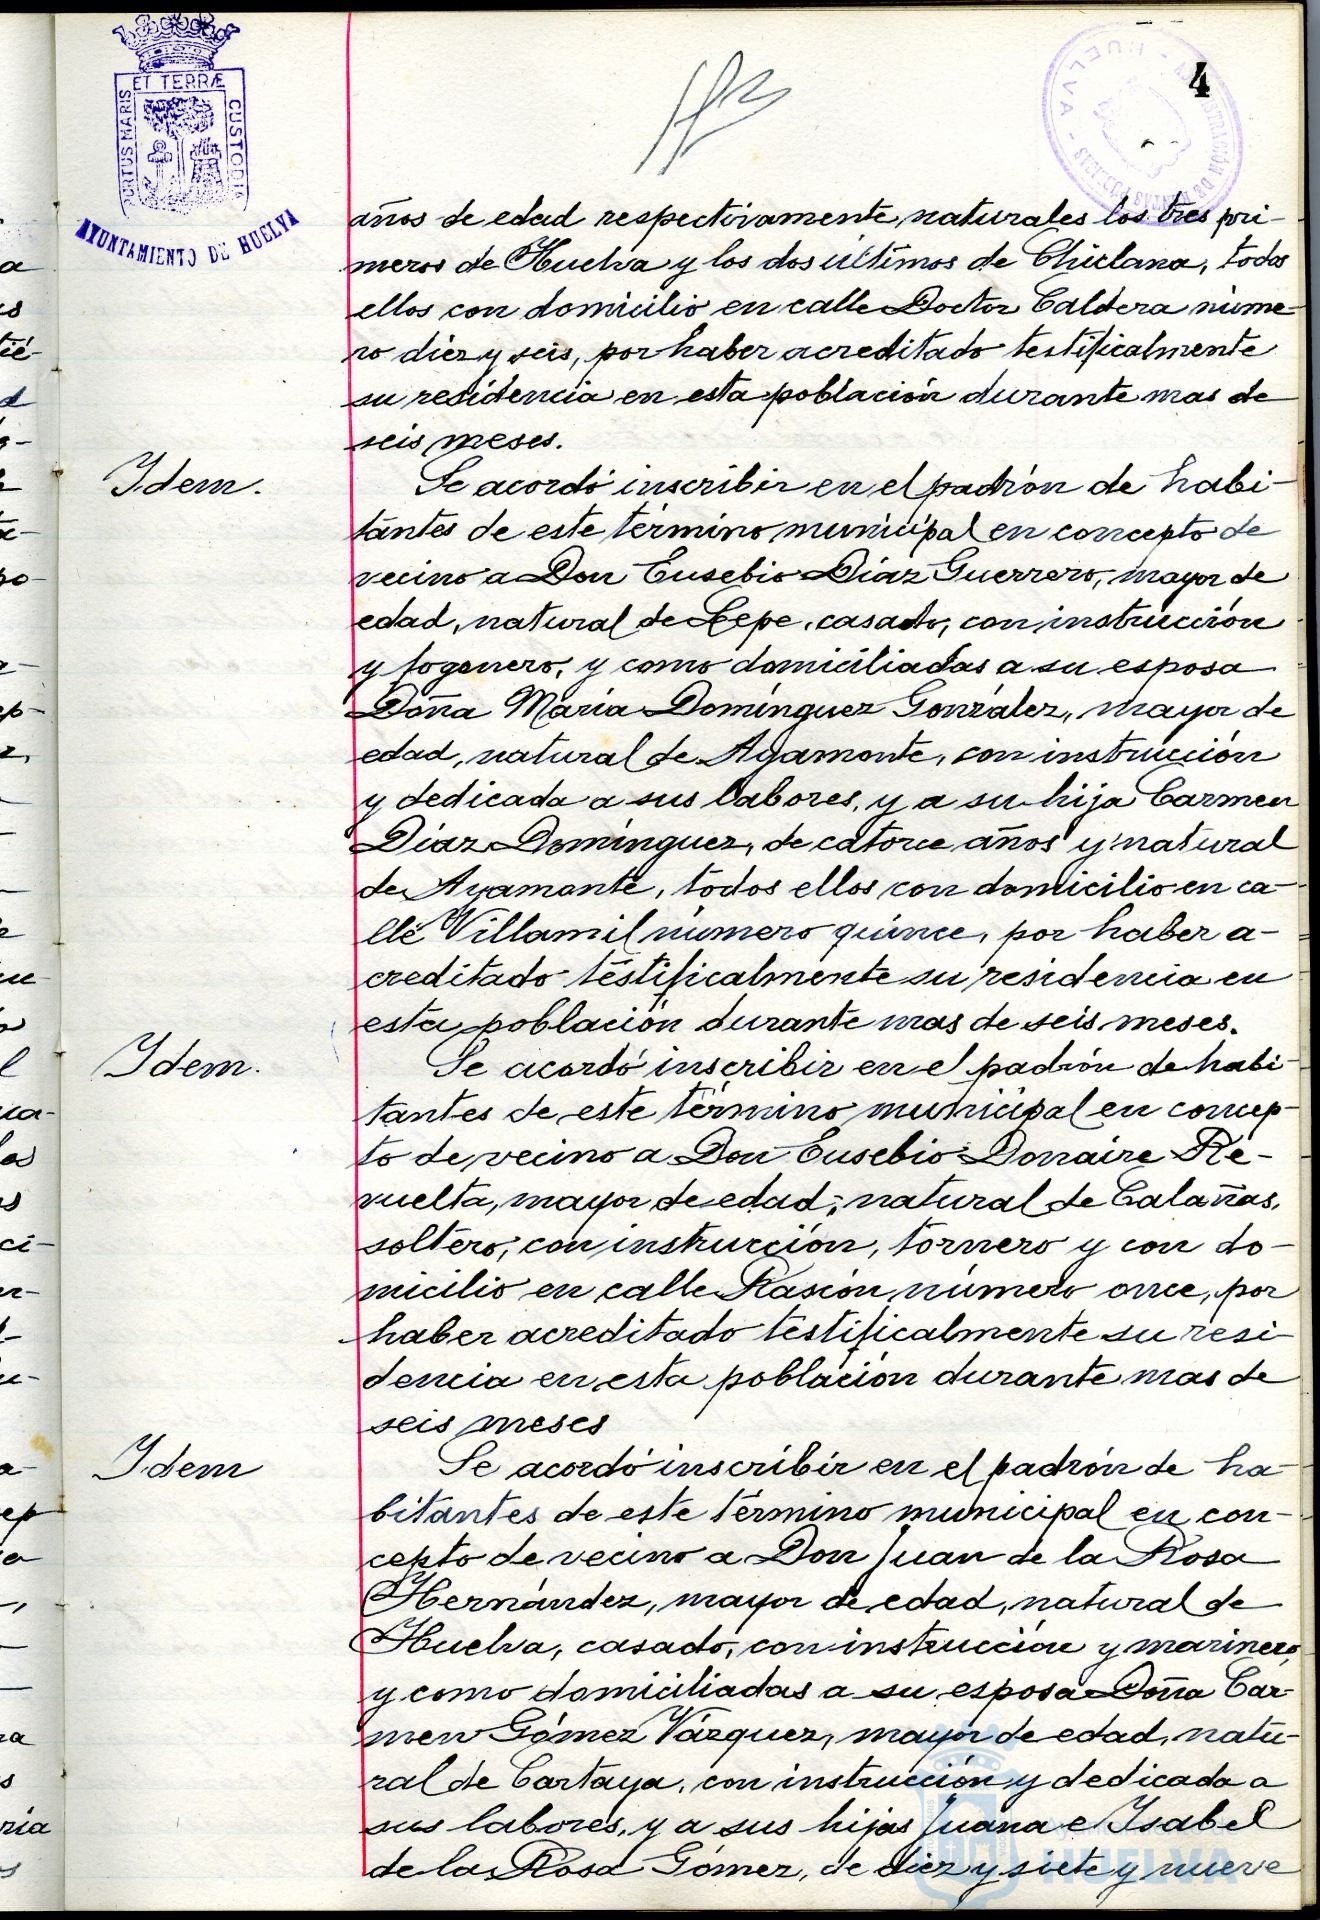 4
ET TERRÆ
PORTUS MARIS
CUSTODIA
AYUNTAMIENTO DE HUELVA
años de edad respectivamente, naturales los tres pri-
meros de Huelva y los dos últimos de Chiclana, todos
ellos con domicilio en calle Doctor Caldera núme-
ro diez y seis, por haber acreditado testificalmente
su residencia en esta población durante mas de
seis meses.
Idem.
Se acordó inscribir en el padrón de habi-
tantes de este término municipal en concepto de
vecino a Don Eusebio Díaz Guerrero, mayor de
edad, natural de Lepe, casado, con instrucción
y fogonero, y como domiciliadas a su esposa
Doña María Domínguez González, mayor de
edad, natural de Ayamonte, con instrucción
y dedicada a sus labores, y a su hija Carmen
Díaz Domínguez, de catorce años y natural
de Ayamonte, todos ellos con domicilio en ca-
lle Villamil número quince, por haber a-
creditado testificalmente su residencia en
esta población durante mas de seis meses.
Idem.
Se acordó inscribir en el padrón de habi-
tantes de este término municipal en concep-
to de vecino a Don Eusebio Donaire Re-
vuelta, mayor de edad, natural de Calañas,
soltero, con instrucción, tornero y con do-
micilio en calle Rascón, número once, por
haber acreditado testificalmente su resi-
dencia en esta población durante mas de
seis meses
Idem
Se acordó inscribir en el padrón de ha-
bitantes de este término municipal en con-
cepto de vecino a Don Juan de la Rosa
Hernández, mayor de edad, natural de
Huelva, casado, con instrucción y marinero,
y como domiciliadas a su esposa Doña Car-
men Gómez Vázquez, mayor de edad, natu-
ral de Cartaya, con instrucción y dedicada a
sus labores, y a sus hijas Juana e Isabel
de la Rosa Gómez, de diez y siete y nueve
HUELVA